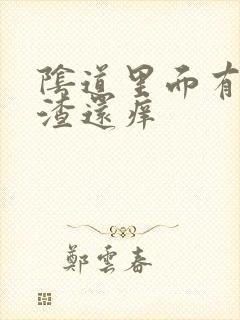 陰道里而有
渣還痒
鄭雲春